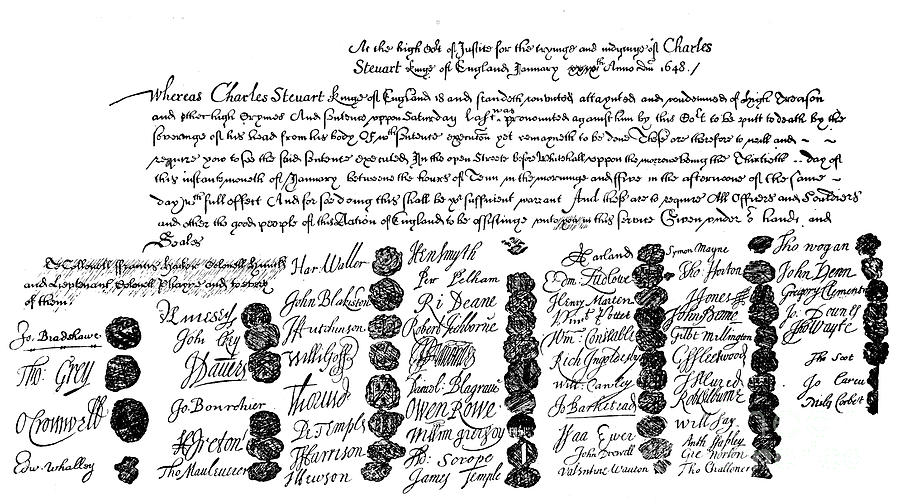 At the high Cort of Justice for the tryinge and iudginge of Charles
Steuart Kinge of England January xxixth Anno Dñi 1648./
Whereas Charles Steuart Kinge of England is and standeth convicted attaynted and condemned of High Treason
and other high Crymes And Sentence uppon Saturday last was pronounced against him by this Cort to be putt to death by the
severinge of his head from his body Of wch Sentence execucon yet remayneth to be done These are therefore to will and
require you to see the said Sentence executed In the open Streete before Whitehall uppon the morrow being the Thirtieth day of
this instante moneth of January betweene the houres of Tenn in the morninge and ffive in the afternoone of the same
day wth full effect And for soe doing this shall be yor sufficient warrant And these are to require All Officers and Souldiers
and other the good people of this Nation of England to be assistinge unto you in this service Given under or hands and
Seales
To Collonell ffrancis Hacker Colonell Huncks
and Lieutenant Colonell Phayre and to every
of them
Jo. Bradshawe
Tho: Grey
O Cromwell
Edw Whalley
John
J Danvers
Jo Bourchier
H Ireton
Tho Mauleverer
Har Waller
John Blakiston
J Hutchinson
Willi Goff
Pe Temple
T Harrison
J Hewson
Hen Smyth
Per Pelham
Ri Deane
Robert
Humf: Blagrave
Owen Rowe
William
Ad: Scrope
James Temple
A Garland
Edm Ludlowe
Henry Marten
Vinct Potter
Wm: Constable
Rich Ingoldesby
Will: Cawley
Jo Barkestead
Isaa Ewer
John
Valentine Wauton
Symon Mayne
Tho Horton
J Jones
John
Gilbt Millington
G Fleetwood
J Alured
Robt Lilburne
Will Say
Anth Stapley
Gre Norton
Tho Challoner
Tho wogan
John Venn
Gregory Clement
Jo: Downes
Tho Wayte
Tho Scot
Jo Carew
Miles Corbet